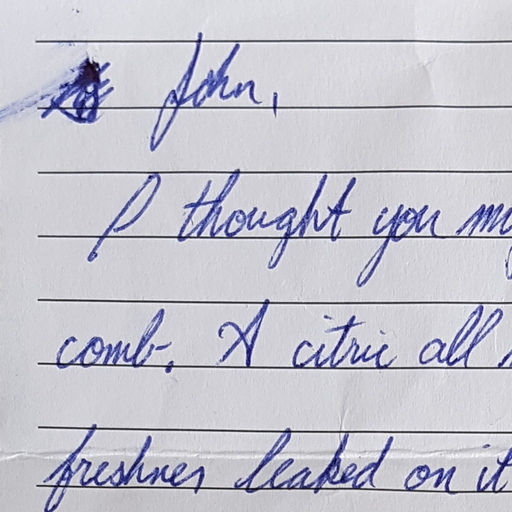 John,
I thought you
comb. A citric all
freshner leaked on it